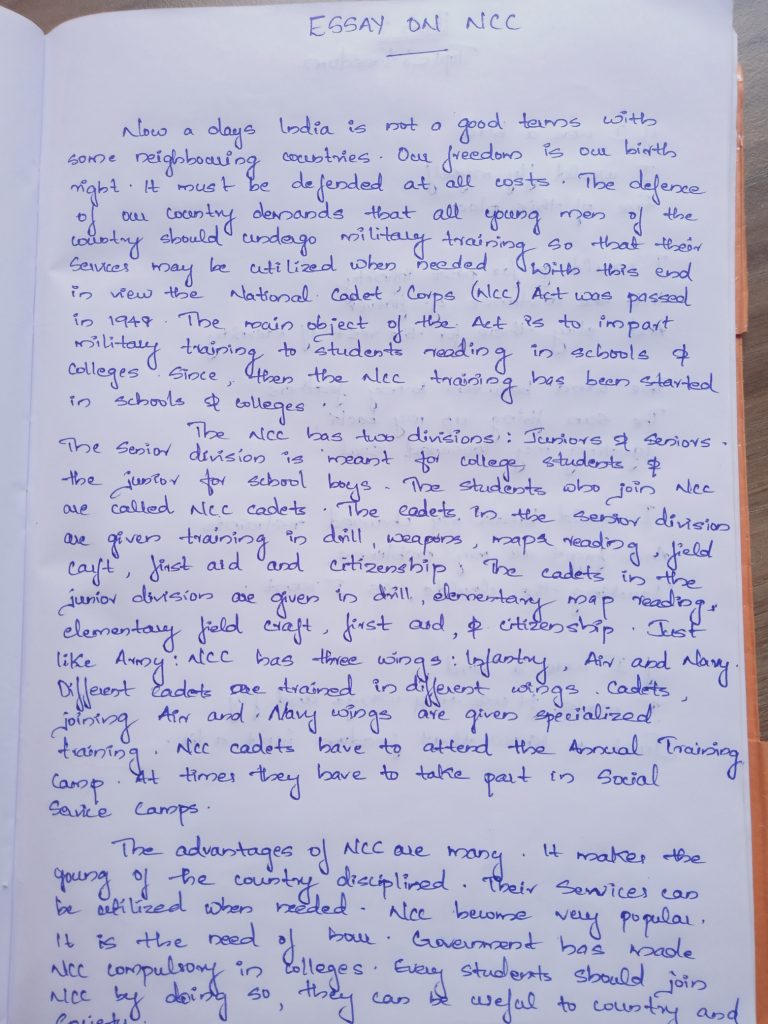 ESSAY ON NCC
Now a days India is not a good terms with
some neighbouring countries. Our freedom is our birth
right. It must be defended at all costs. The defence
of our country demands that all young men of the
country should undergo military training so that their
Services may be utilized when needed. With this end
in view the National Cadet Corps (NCC) Act was passed
in 1948. The main object of the Act is to impart
military training to students reading in schools &
colleges. Since, then the NCC, training has been started
in schools & colleges.
The NCC has two divisions: Juniors & Seniors.
The senior division is meant for college, students, &
the junior for school boys. The students who join NCC
are called NCC cadets. The cadets in the senior division
are given training in drill, weapons, maps reading, field
cayt, first aid and citizenship. The cadets in the
junior division are given in drill, elementary map reading,
elementary field craft, first aid, & citizenship. Just
like Army: NCC has three wings: Infantry, Air and Navy.
Different cadets are trained in different wings. Cadets,
joining Air and Navy wings are given specialized
training. NCC cadets have to attend the Annual Training
Camp. At times they have to take part in Social
Service Camps.
The advantages of NCC are many. It makes the
young of the country disciplined. Their Services can
be utilized when needed. NCC become very popular.
It is the need of hour. Government has made
NCC compulsory in colleges. Every students should join
NCC by doing so, they can be useful to country and
Society.